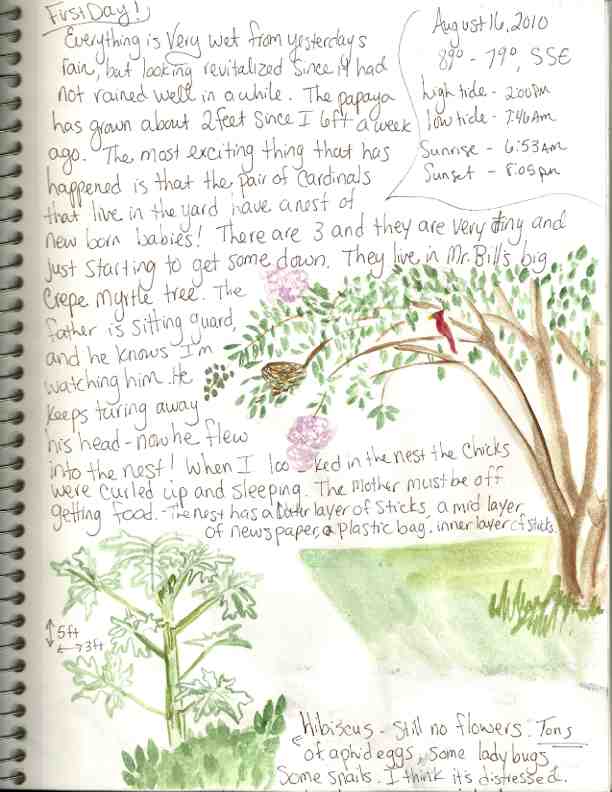 First Day!
Everything is Very wet from yesterdays
rain, but looking revitalized since it had
not rained well in a while. The papaya
has grown about 2 feet since I left a week
ago. The most exciting thing that has
happened is that the pair of Cardinals
that live in the yard have a nest of
new born babies! There are 3 and they are very tiny and
just starting to get some down. They live in Mr. Bill's big
Crepe Myrtle tree. The
father is sitting guard,
and he knows I'm
watching him. He
keeps turing away
his head - now he flew
into the nest! When I looked in the nest the Chicks
were curled up and sleeping. The mother must be off
getting food. - The nest has a layer of sticks, a mid layer
of newspaper, a plastic bag. inner layer of sticks.
August 16, 2010
89° - 79°, SSE
high tide - 2:00 pm
low tide - 7:46 Am
Sunrise - 6:53 AM
Sunset - 8:05 pm
5ft
3ft
Hibiscus - Still no flowers. Tons
of aphid eggs, some lady bugs
Some snails. I think it's distressed.